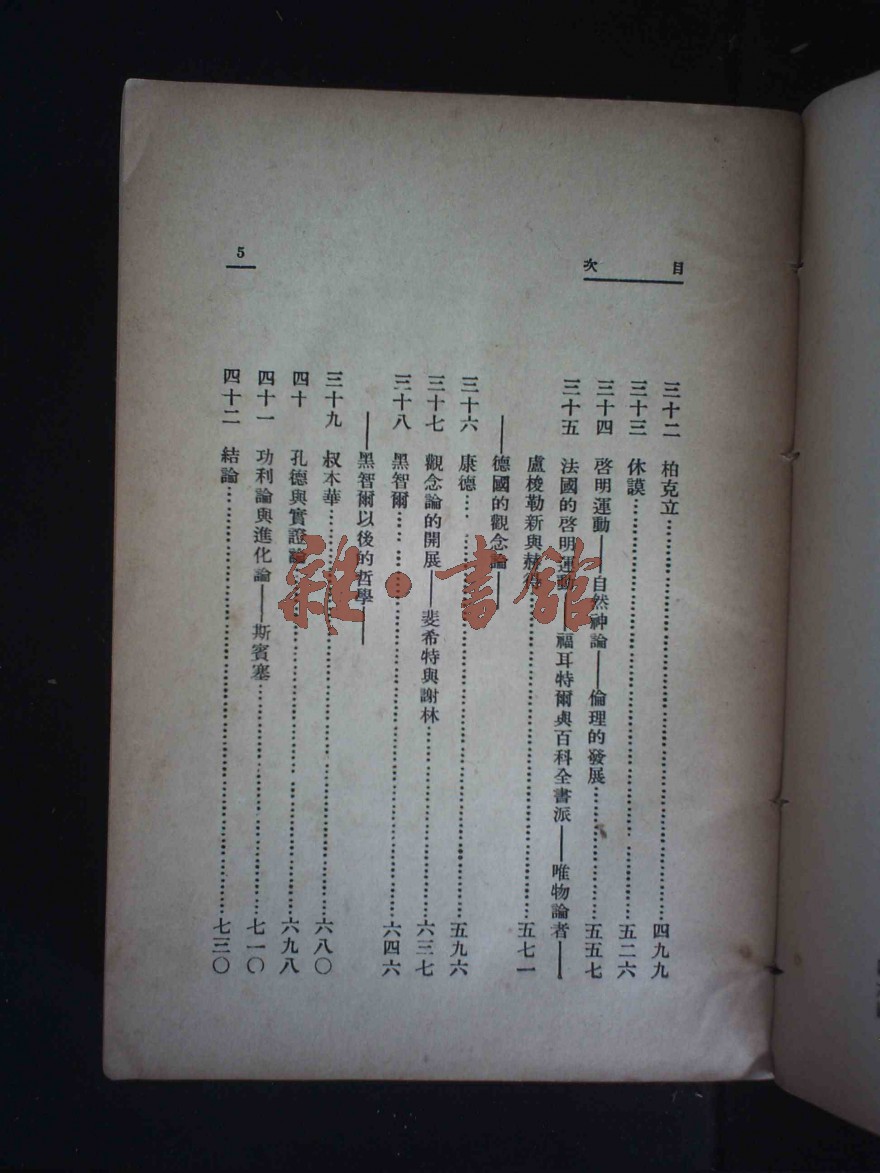 目次
三十二　柏克立…………四九九
三十三　休謨…………五二六
三十四　啓明運動——自然神論——倫理的發展…………五五七
三十五　法國的啓明運動——福耳特爾與百科全書派——唯物論者——
盧梭勒新與赫得…………五七一
——德國的觀念論——
三十六　康德…………五九六
三十七　觀念論的開展——斐希特與謝林…………六三七
三十八　黑智爾…………六四六
——黑智爾以後的哲學——
三十九　叔本華…………六八〇
四十　孔德與實證論…………六九八
四十一　功利論與進化論——斯賓塞…………七一〇
四十二　結論…………七三〇
5
雜·書館